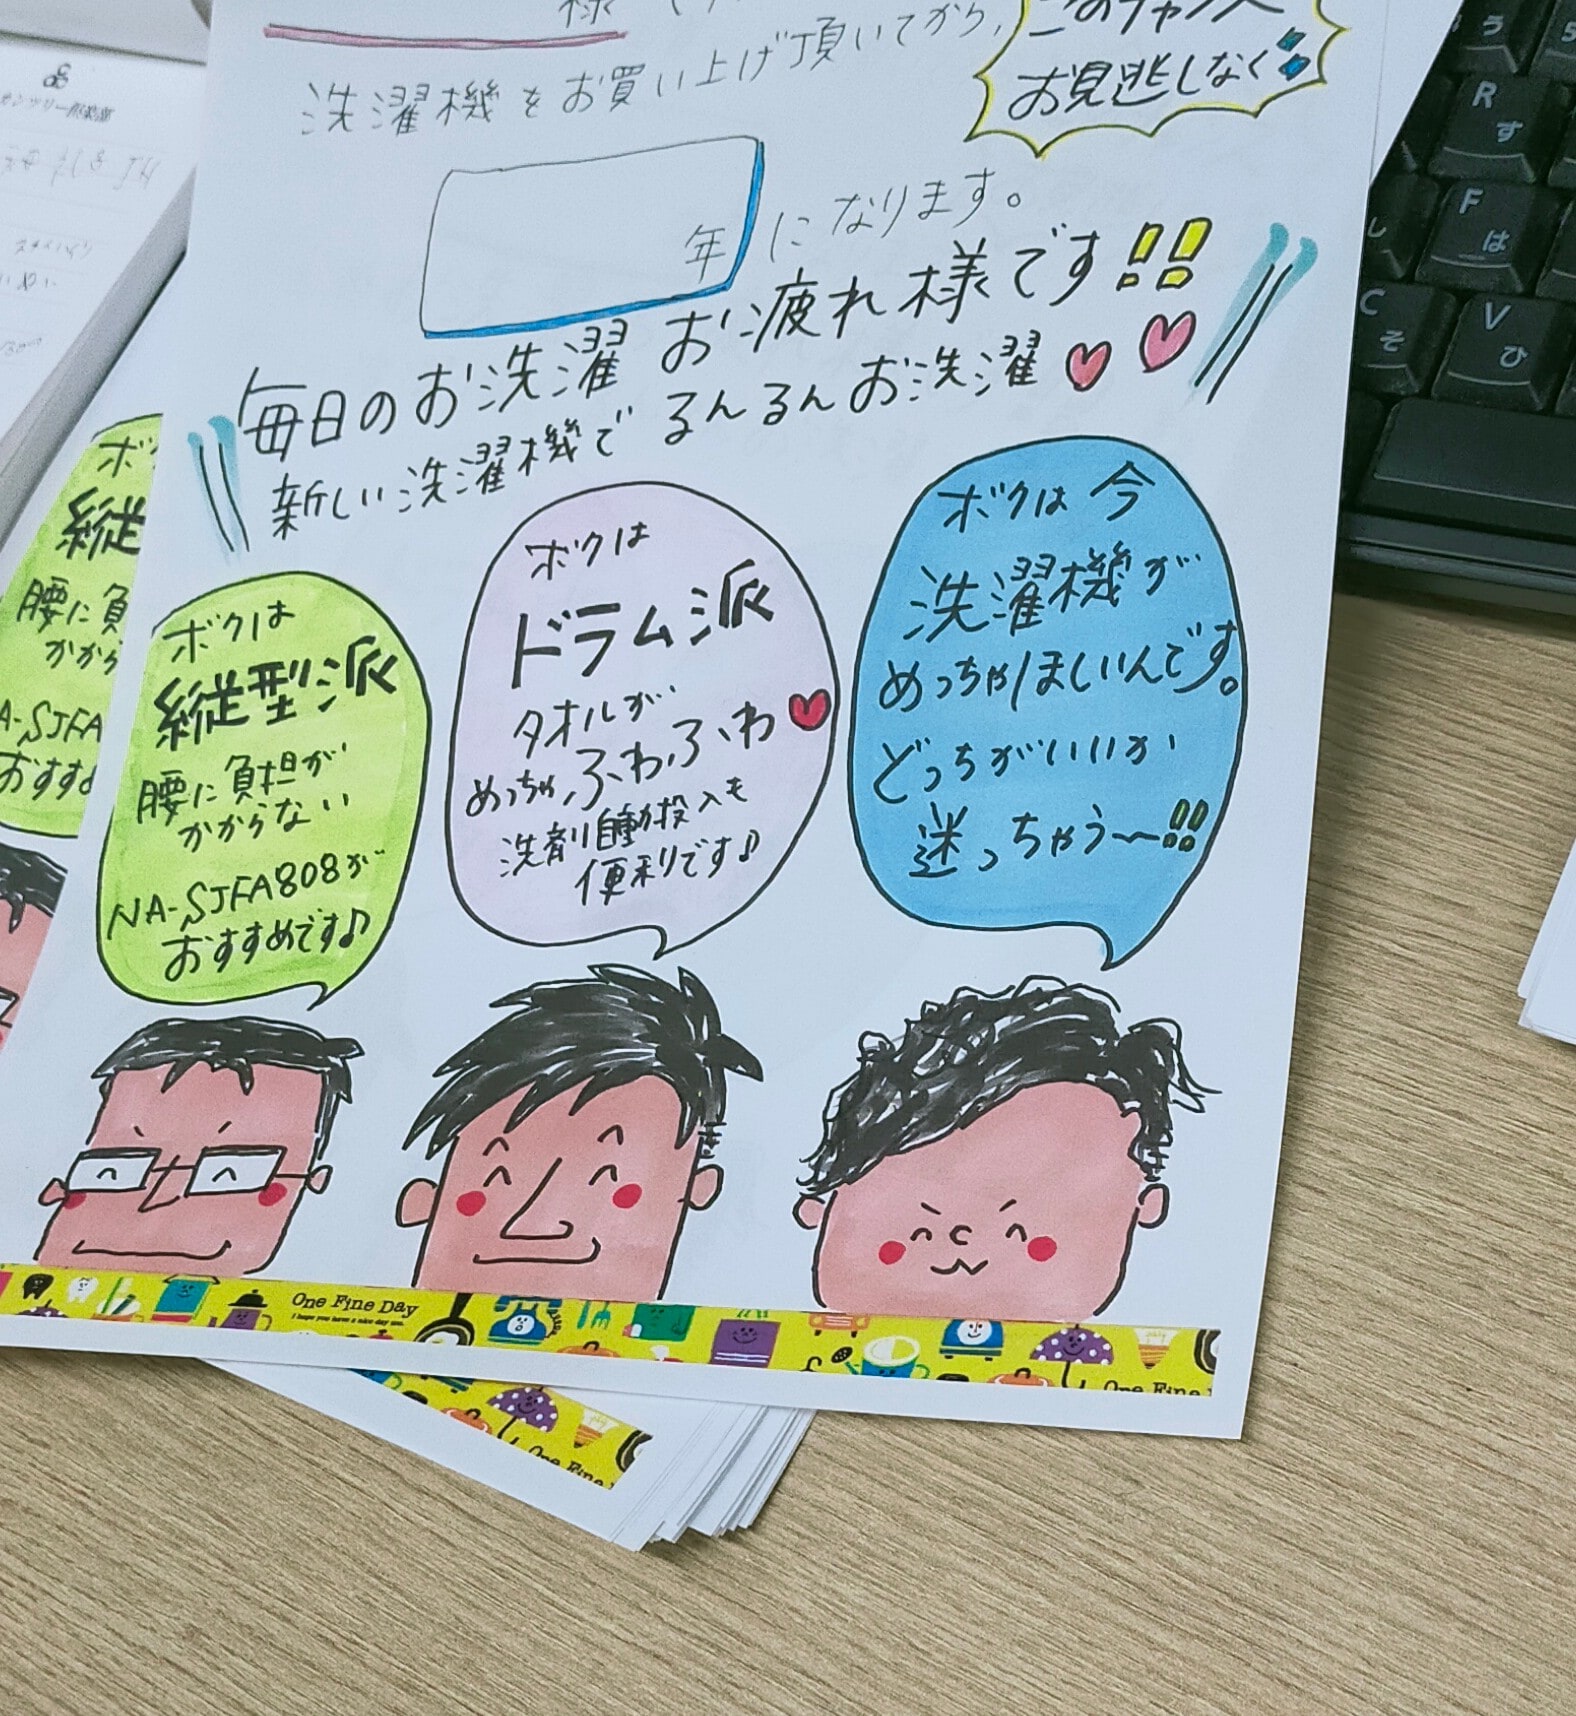 様
洗濯機をお買い上げ頂いてから、
このチャンス
お見逃しなく
年になります。
毎日のお洗濯 お疲れ様です!!
新しい洗濯機で るんるんお洗濯
ボクは
縦型派
腰に負担が
かからない
NA-SJFA808が
おすすめです♪
ボクは
ドラム派
タオルが
めっちゃ、ふわふわ
洗剤自動投入も
便利です♪
ボクは今
洗濯機が
めっちゃほしいんです。
どっちがいいか
迷っちゃう〜!!
One Fine Day
I hope you have a nice day.
One Fine
縦
腰に負
かから
A-SJFA
おすす
One Fine
う
R
す
F
は
し
C
そ
V
ひ